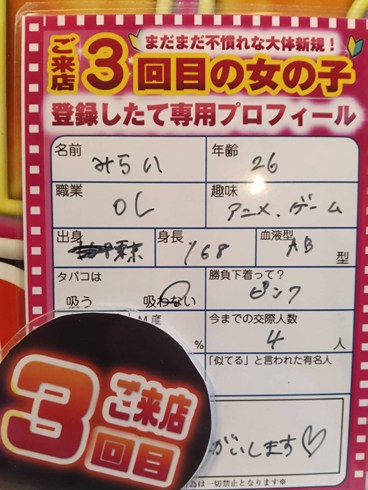 まだまだ不慣れな大体新規！
ご来店3回目の女の子
登録したて専用プロフィール
名前 みらい
年齢 26
職業 OL
趣味 アニメ・ゲーム
出身 東京
身長 168
血液型 AB 型
タバコは 吸う 吸わない
勝負下着って? ピンク
M度 %
今までの交際人数 4 人
「似てる」と言われた有名人
がいします♡
ご来店
3回目
為は一切禁止となります※